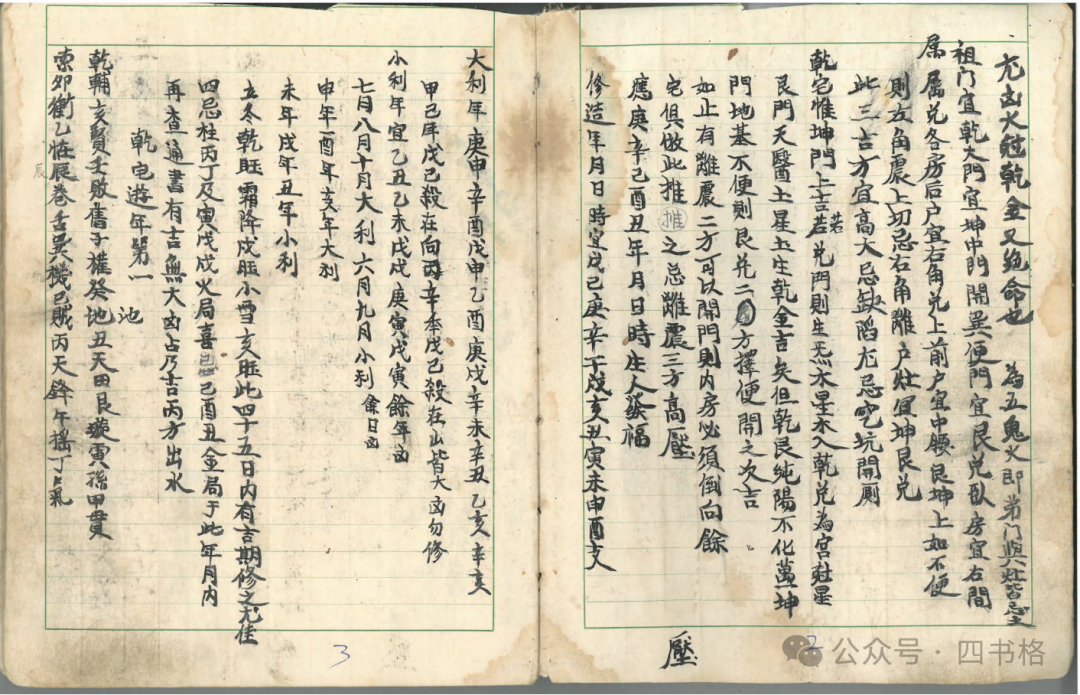 尤凶火尅乾金又絶命也 為五鬼火即弟门與灶皆忌之
祖门宜乾大門宜坤中門開巽便門宜艮兑卧房宜右間
属 属兑各房后户宜右角兑上前户宜中腰艮坤上如不便
則左角震上切忌右角離户灶宜坤艮兑
此三吉方宜高大忌缺陷尤忌吃坑開厠
乾宅惟坤門上吉若 若 兑門則生炁木星木入乾兑為宫尅星
艮門天醫土星土生乾金吉矣但乾艮純陽不化萬坤
門地基不便則艮兑二方擇便開之次吉
如止有離震二方可以開門則内房必須倒向餘
宅俱倣此推 推 之忌離震三方高壓
應庚辛己酉丑年月日時庄人發福
修造年月日時宜戊己庚辛午戌亥丑寅未申酉支
壓
2
公众号·四书格
大利年庚申辛酉戊申乙酉庚戌辛未辛丑乙亥辛亥
甲己年戊己殺在向丙辛季戊己殺在山皆大凶勿修
小利年宜乙丑乙未戊戌庚寅戊寅餘年凶
七月八月十月大利六月九月小利 餘日凶
申年酉年亥年大利
未年戌年丑年小利
立冬乾旺霜降戌旺小雪亥旺此四十五日内有吉期修之尤佳
四忌柱丙丁及寅戌戊火局喜 忌 己酉丑金局于此年月内
再查通書有吉無大凶占乃吉丙方出水
乾宅遊年第一
池
乾輔亥賢壬敗舊子權癸地丑天田艮璇寅孫甲貫
索卯衝乙临辰卷舌巽機巳賊丙天鋒午摇丁上氣
辰
3